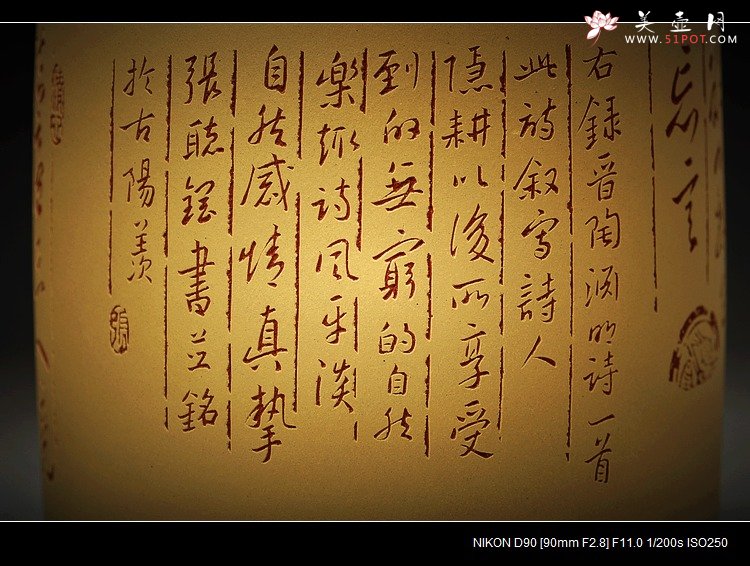 美壶网
WWW.51POT.COM
忘言
右録晋陶淵明诗一首
此诗叙写詩人
隐耕以後所享受
到的無窮的自然
樂趣诗风平淡
自然感情真摯
張聴鋼書並銘
於古陽羨
NIKON D90 [90mm F2.8] F11.0 1/200s ISO250